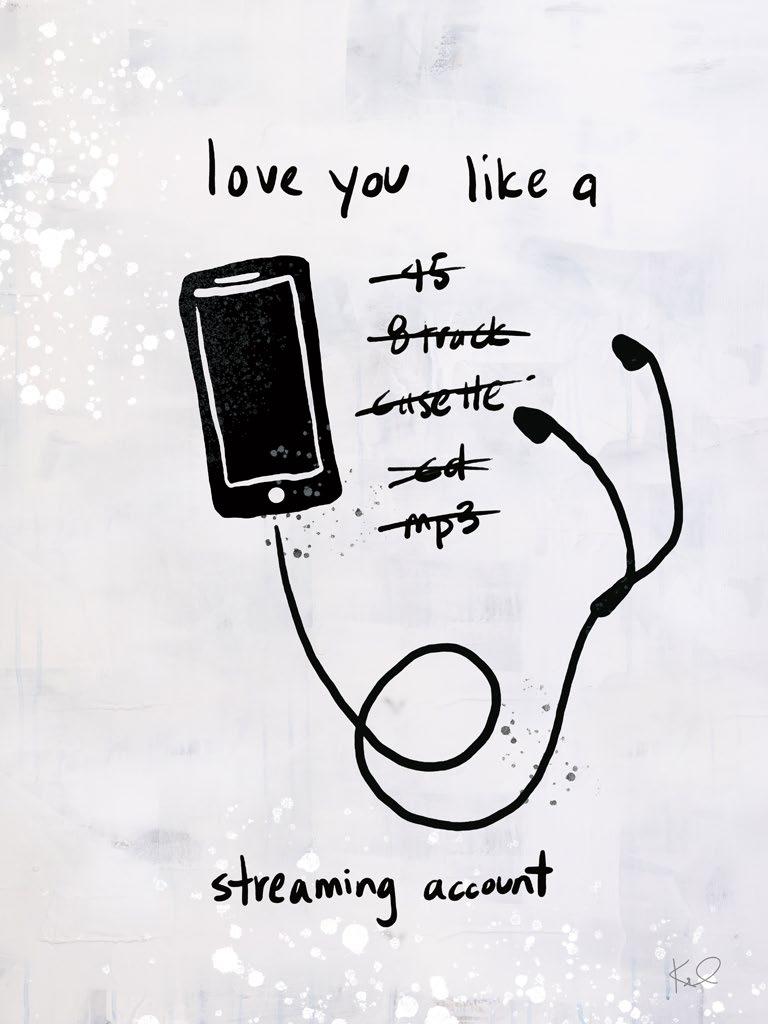 love you like a
45
8 track
casette
cd
mp3
streaming account